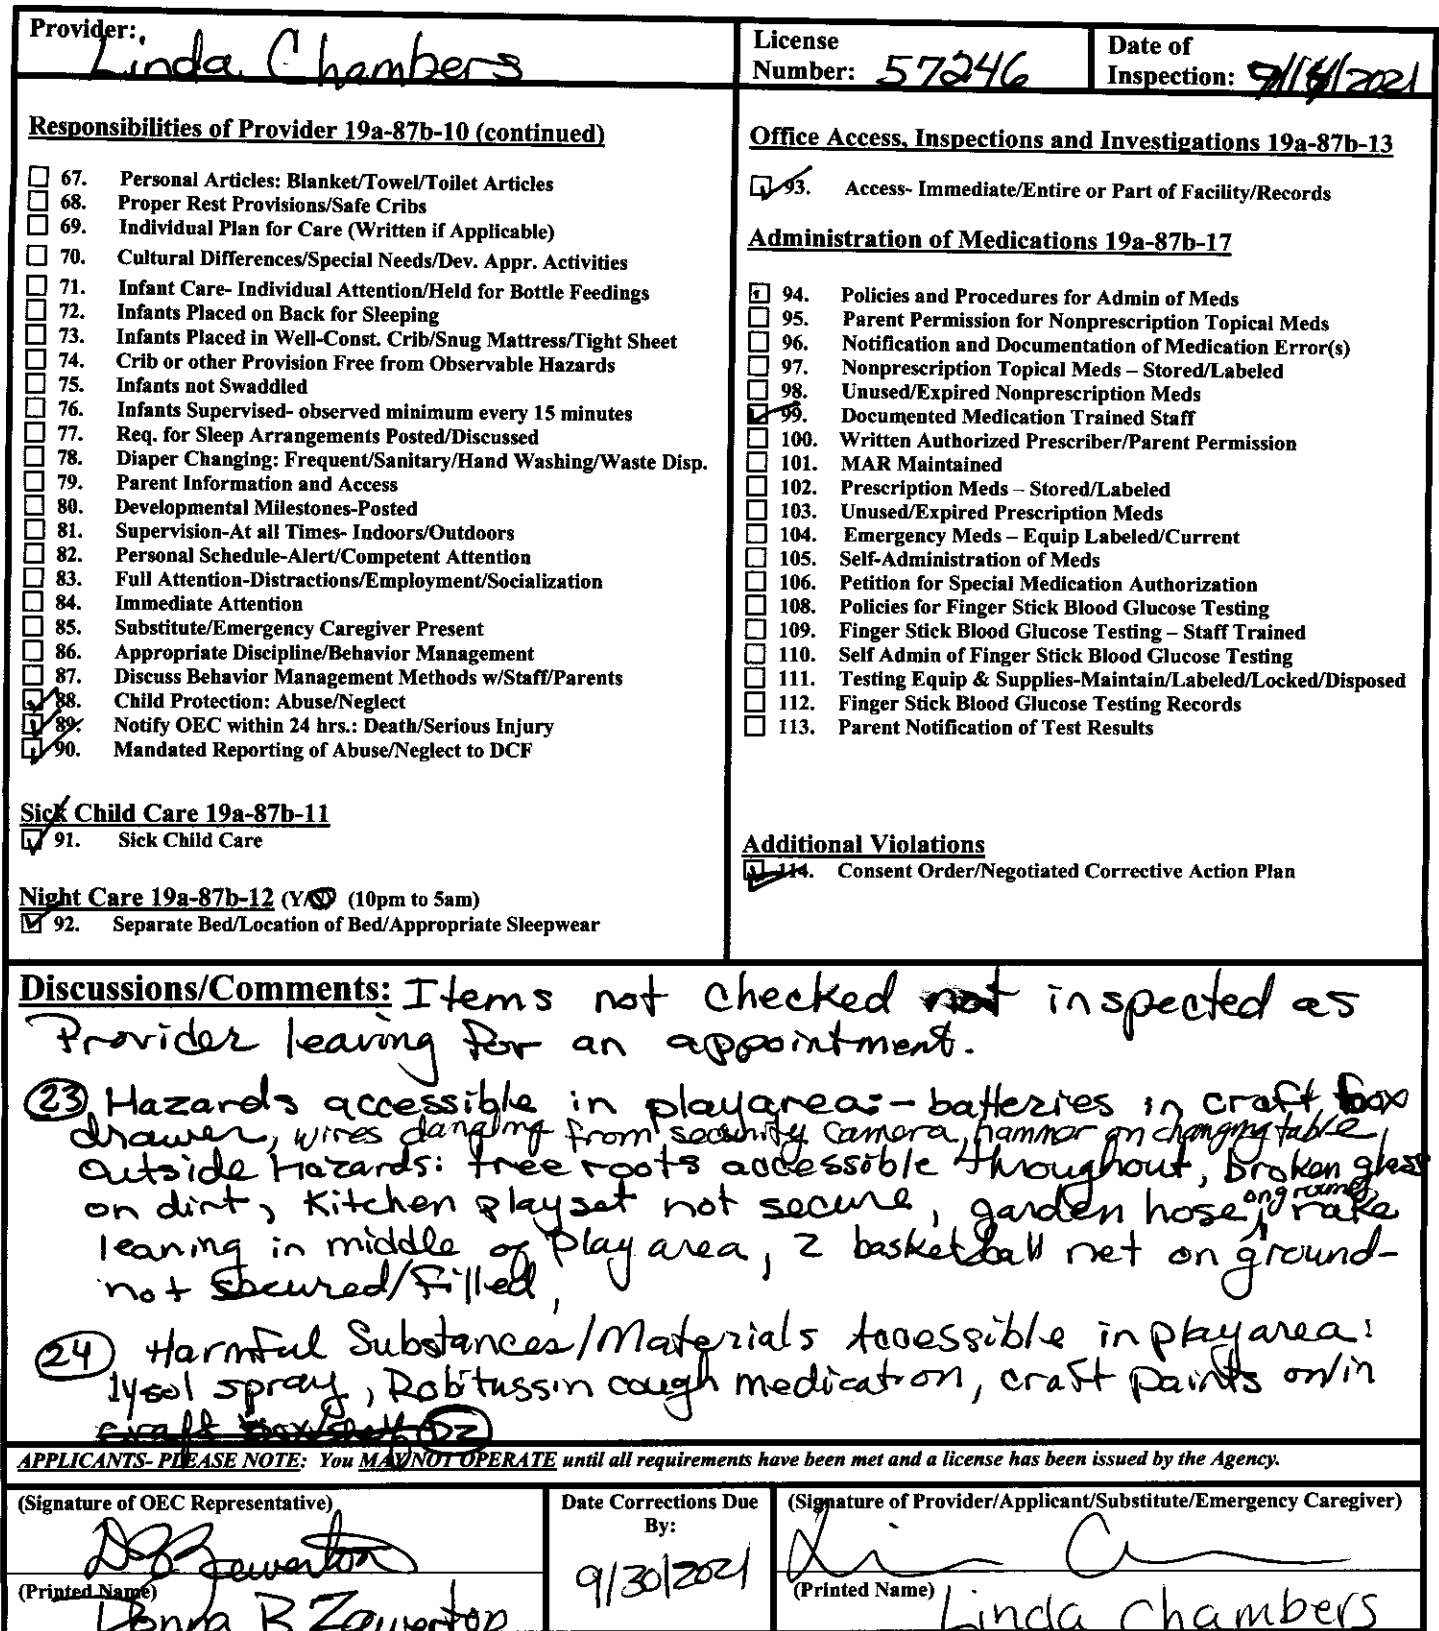 Provider: Linda Chambers
License Number: 57246
Date of Inspection: 9/14/2021
Responsibilities of Provider 19a-87b-10 (continued)
67. Personal Articles: Blanket/Towel/Toilet Articles
68. Proper Rest Provisions/Safe Cribs
69. Individual Plan for Care (Written if Applicable)
70. Cultural Differences/Special Needs/Dev. Appr. Activities
71. Infant Care- Individual Attention/Held for Bottle Feedings
72. Infants Placed on Back for Sleeping
73. Infants Placed in Well-Const. Crib/Snug Mattress/Tight Sheet
74. Crib or other Provision Free from Observable Hazards
75. Infants not Swaddled
76. Infants Supervised- observed minimum every 15 minutes
77. Req. for Sleep Arrangements Posted/Discussed
78. Diaper Changing: Frequent/Sanitary/Hand Washing/Waste Disp.
79. Parent Information and Access
80. Developmental Milestones-Posted
81. Supervision-At all Times- Indoors/Outdoors
82. Personal Schedule-Alert/Competent Attention
83. Full Attention-Distractions/Employment/Socialization
84. Immediate Attention
85. Substitute/Emergency Caregiver Present
86. Appropriate Discipline/Behavior Management
87. Discuss Behavior Management Methods w/Staff/Parents
88. Child Protection: Abuse/Neglect
89. Notify OEC within 24 hrs.: Death/Serious Injury
90. Mandated Reporting of Abuse/Neglect to DCF
Sick Child Care 19a-87b-11
91. Sick Child Care
Night Care 19a-87b-12 (Y/N) (10pm to 5am)
92. Separate Bed/Location of Bed/Appropriate Sleepwear
Office Access, Inspections and Investigations 19a-87b-13
93. Access- Immediate/Entire or Part of Facility/Records
Administration of Medications 19a-87b-17
94. Policies and Procedures for Admin of Meds
95. Parent Permission for Nonprescription Topical Meds
96. Notification and Documentation of Medication Error(s)
97. Nonprescription Topical Meds – Stored/Labeled
98. Unused/Expired Nonprescription Meds
99. Documented Medication Trained Staff
100. Written Authorized Prescriber/Parent Permission
101. MAR Maintained
102. Prescription Meds – Stored/Labeled
103. Unused/Expired Prescription Meds
104. Emergency Meds – Equip Labeled/Current
105. Self-Administration of Meds
106. Petition for Special Medication Authorization
108. Policies for Finger Stick Blood Glucose Testing
109. Finger Stick Blood Glucose Testing – Staff Trained
110. Self Admin of Finger Stick Blood Glucose Testing
111. Testing Equip & Supplies-Maintain/Labeled/Locked/Disposed
112. Finger Stick Blood Glucose Testing Records
113. Parent Notification of Test Results
Additional Violations
114. Consent Order/Negotiated Corrective Action Plan
Discussions/Comments: Items not checked not inspected as
Provider leaving for an appointment.
23 Hazards accessible in playarea:- batteries in craft box
drawer, wires dangling from security camera, hammer on changing table,
outside Hazards: tree roots accessible throughout, broken glass
on dirt, Kitchen playset not secure, garden hose on ground, rake
leaning in middle of play area, 2 basketball net on ground-
not secured/filled,
24 Harmful Substances/Materials Accessible in playarea:
lysol spray, Robitussin cough medication, craft paints on/in
craft box/shelf DZ
APPLICANTS- PLEASE NOTE: You MAY NOT OPERATE until all requirements have been met and a license has been issued by the Agency.
(Signature of OEC Representative)
Date Corrections Due By:
9/30/2021
(Signature of Provider/Applicant/Substitute/Emergency Caregiver)
(Printed Name) Donna B Zawerton
(Printed Name) Linda Chambers